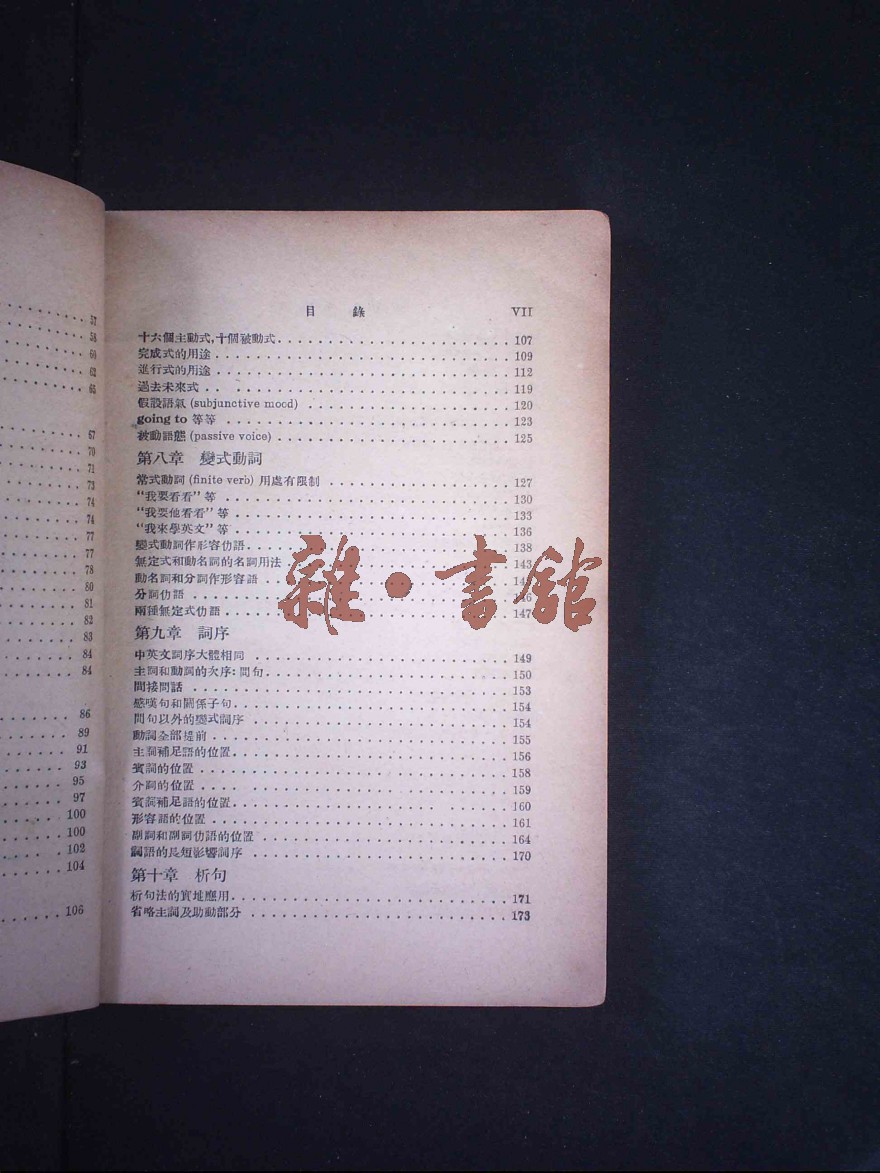 57
58
60
62
65
67
70
71
73
74
74
77
77
78
80
81
82
83
84
84
86
89
91
93
95
97
100
100
102
104
106
目 錄 VII
十六個主動式,十個被動式 107
完成式的用途 109
進行式的用途 112
過去未來式 119
假設語氣 (subjunctive mood) 120
going to 等等 123
被動語態 (passive voice) 125
第八章 變式動詞
常式動詞 (finite verb) 用處有限制 127
“我要看看” 等 130
“我要他看看” 等 133
“我來學英文” 等 136
變式動詞作形容仂語 138
無定式和動名詞的名詞用法 143
動名詞和分詞作形容語
分詞仂語 146
兩種無定式仂語 147
第九章 詞序
中英文詞序大體相同 149
主詞和動詞的次序: 問句 150
間接問話 153
感嘆句和關係子句 154
問句以外的變式詞序 154
動詞全部提前 155
主詞補足語的位置 156
賓詞的位置 158
介詞的位置 159
賓詞補足語的位置 160
形容語的位置 161
副詞和副詞仂語的位置 164
詞語的長短影響詞序 170
第十章 析句
析句法的實地應用 171
省略主詞及助動部分 173
雜·書館